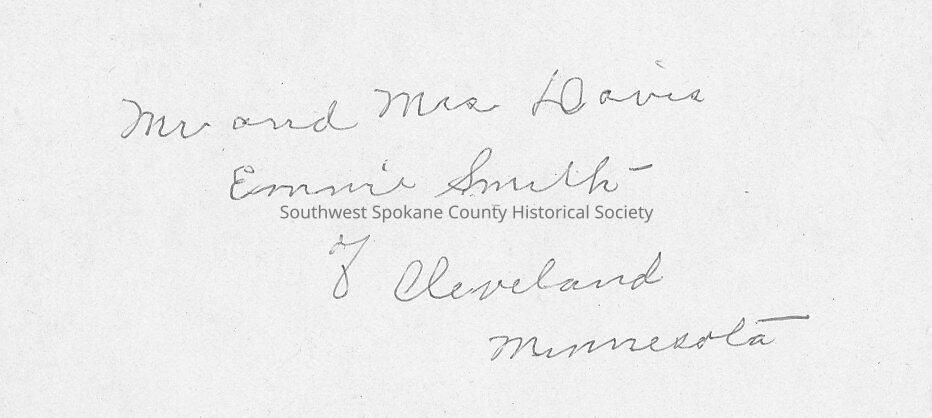 Mr and Mrs Davis
Emmie Smith
Southwest Spokane County Historical Society
of Cleveland
Minnesota